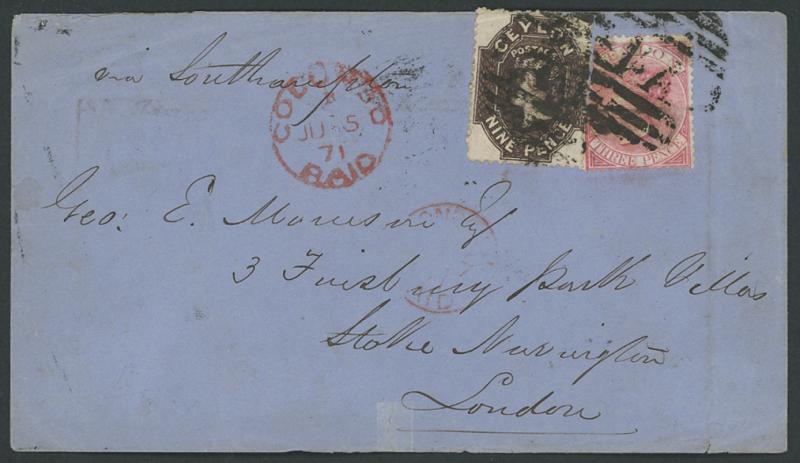 via Southampton
COLOMBO
JU 5
71
PAID
CEYLON
POSTAGE
NINE PENCE
THREE PENCE
Geo: E. Morrison Esq
3 Finsbury Park Villas
Stoke Newington
London